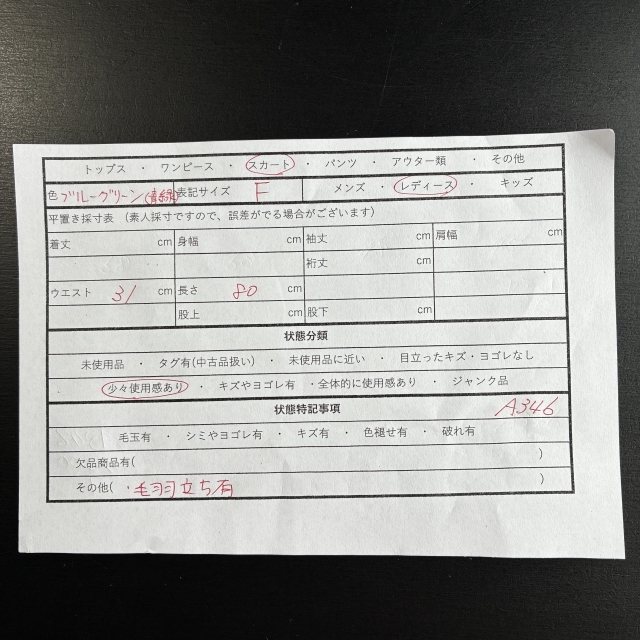 トップス ・ ワンピース ・ スカート ・ パンツ ・ アウター類 ・ その他
色 ブルーグリーン(青緑) 表記サイズ F メンズ ・ レディース ・ キッズ
平置き採寸表 (素人採寸ですので、誤差がでる場合がございます)
着丈 cm 身幅 cm 袖丈 cm 肩幅 cm
裄丈 cm
ウエスト 31 cm 長さ 80 cm
股上 cm 股下 cm
状態分類
未使用品 ・ タグ有(中古品扱い) ・ 未使用品に近い ・ 目立ったキズ・ヨゴレなし
少々使用感あり ・ キズやヨゴレ有 ・全体的に使用感あり ・ ジャンク品
状態特記事項 A346
毛玉有 ・ シミやヨゴレ有 ・ キズ有 ・ 色褪せ有 ・ 破れ有
欠品商品有( )
その他( ・毛羽立ち有 )